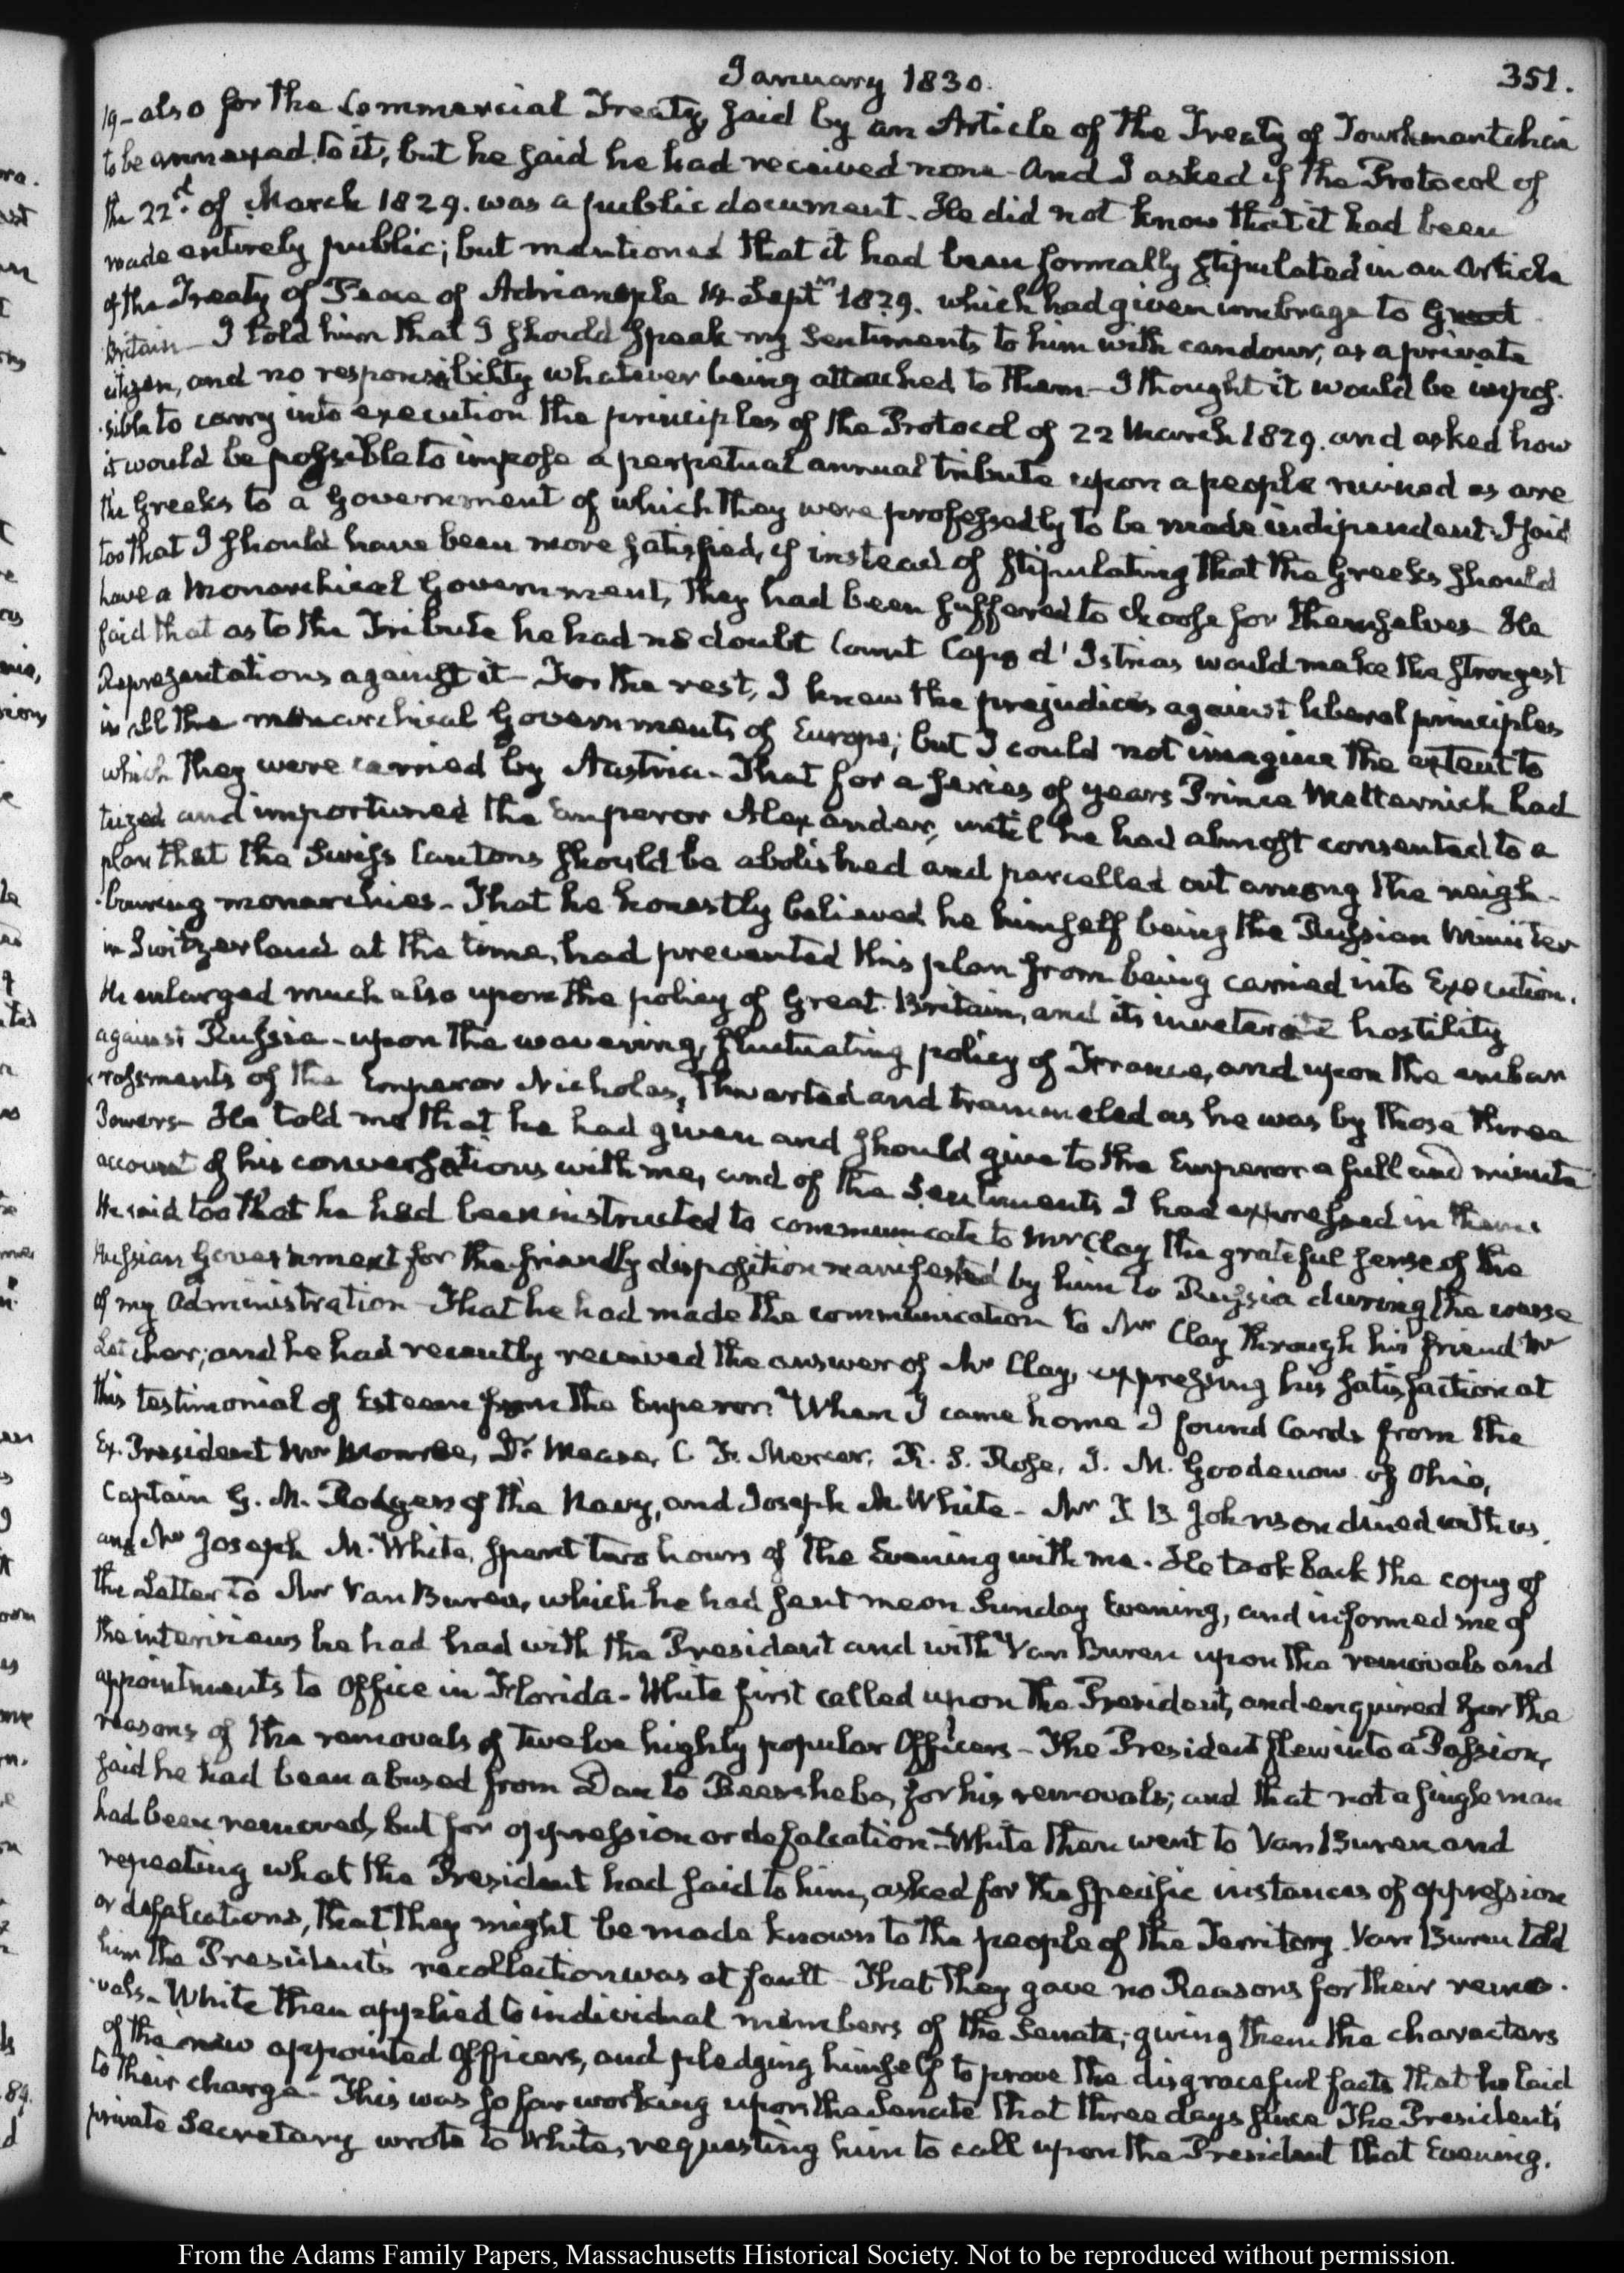 January 1830.
351.
19- also for the Commercial Treaty, said by an Article of the Treaty of Tourkmantchai
to be annexed to it, but he said he had received none- And I asked if the Protocol of
the 22d. of March 1829. was a public document- He did not know that it had been
made entirely public; but mentioned that it had been formally stipulated in an Article
of the Treaty of Peace of Adrianople 14 Septr 1829. which had given umbrage to Great
Britain- I told him that I should speak my sentiments to him with candour, as a private
citizen, and no responsibility whatever being attached to them- I thought it would be impos-
-sible to carry into execution the principles of the Protocol of 22 March 1829. and asked how
it would be possible to impose a perpetual annual tribute upon a people ruined as are
the Greeks to a Government of which they were professedly to be made independent. I said
too that I should have been more satisfied, if instead of stipulating that the Greeks should
have a Monarchical Government, they had been suffered to choose for themselves- He
said that as to the Tribute he had no doubt Count Capo d'Istrias would make the strongest
Representations against it- For the rest, I knew the prejudices against liberal principles
in all the monarchical Governments of Europe; but I could not imagine the extent to
which they were carried by Austria- That for a series of years Prince Metternich had
teized and importuned the Emperor Alexander, until he had almost consented to a
plan that the Swiss Cantons should be abolished and parcelled out among the neigh-
-bouring monarchies- That he honestly believed he himself being the Russian Minister
in Switzerland at the time, had prevented this plan from being carried into Execution.
He enlarged much also upon the policy of Great Britain, and its inveterate hostility
against Russia- upon the wavering, fluctuating policy of France, and upon the embar
rassments of the Emperor Nicholas, thwarted and trammeled as he was by those three
Powers- He told me that he had given and should give to the Emperor a full and minute
account of his conversations with me, and of the Sentiments I had expressed in them.
He said too that he had been instructed to communicate to Mr Clay the grateful sense of the
Russian Government for the friendly disposition manifested by him to Russia during the course
of my Administration- That he had made the communication to Mr Clay through his friend Mr
Letcher; and he had recently received the answer of Mr Clay, expressing his satisfaction at
this testimonial of Esteem from the Emperor. When I came home I found Cards from the
Ex-President Mr Monroe, Dr. Mease, C. F. Mercer, R. S. Rose, J. M. Goodenow of Ohio,
Captain G. M. Rodgers of the Navy, and Joseph M. White- Mr J B Johnson dined with us.
and Mr Joseph M. White, spent two hours of the Evening with me. He took back the copy of
the Letter to Mr Van Buren, which he had sent me on Sunday Evening, and informed me of
the interviews he had had with the President and with Van Buren upon the removals and
appointments to Office in Florida- White first called upon the President, and enquired for the
reasons of the removals of twelve highly popular Officers- The President flew into a Passion,
said he had been abused from Dan to Beersheba, for his removals; and that not a single man
had been removed, but for oppression or defalcation- White then went to Van Buren and
repeating what the President had said to him, asked for the specific instances of oppression
or defalcations, that they might be made known to the people of the Territory. Van Buren told
him the President's recollection was at fault- That they gave no Reasons for their remo-
-vals- White then applied to individual members of the Senate; giving them the characters
of the new appointed Officers, and pledging himself to prove the disgraceful facts that he laid
to their charge- This was so far working upon the Senate that three days since the President's
private Secretary wrote to White, requesting him to call upon the President that Evening.
From the Adams Family Papers, Massachusetts Historical Society. Not to be reproduced without permission.